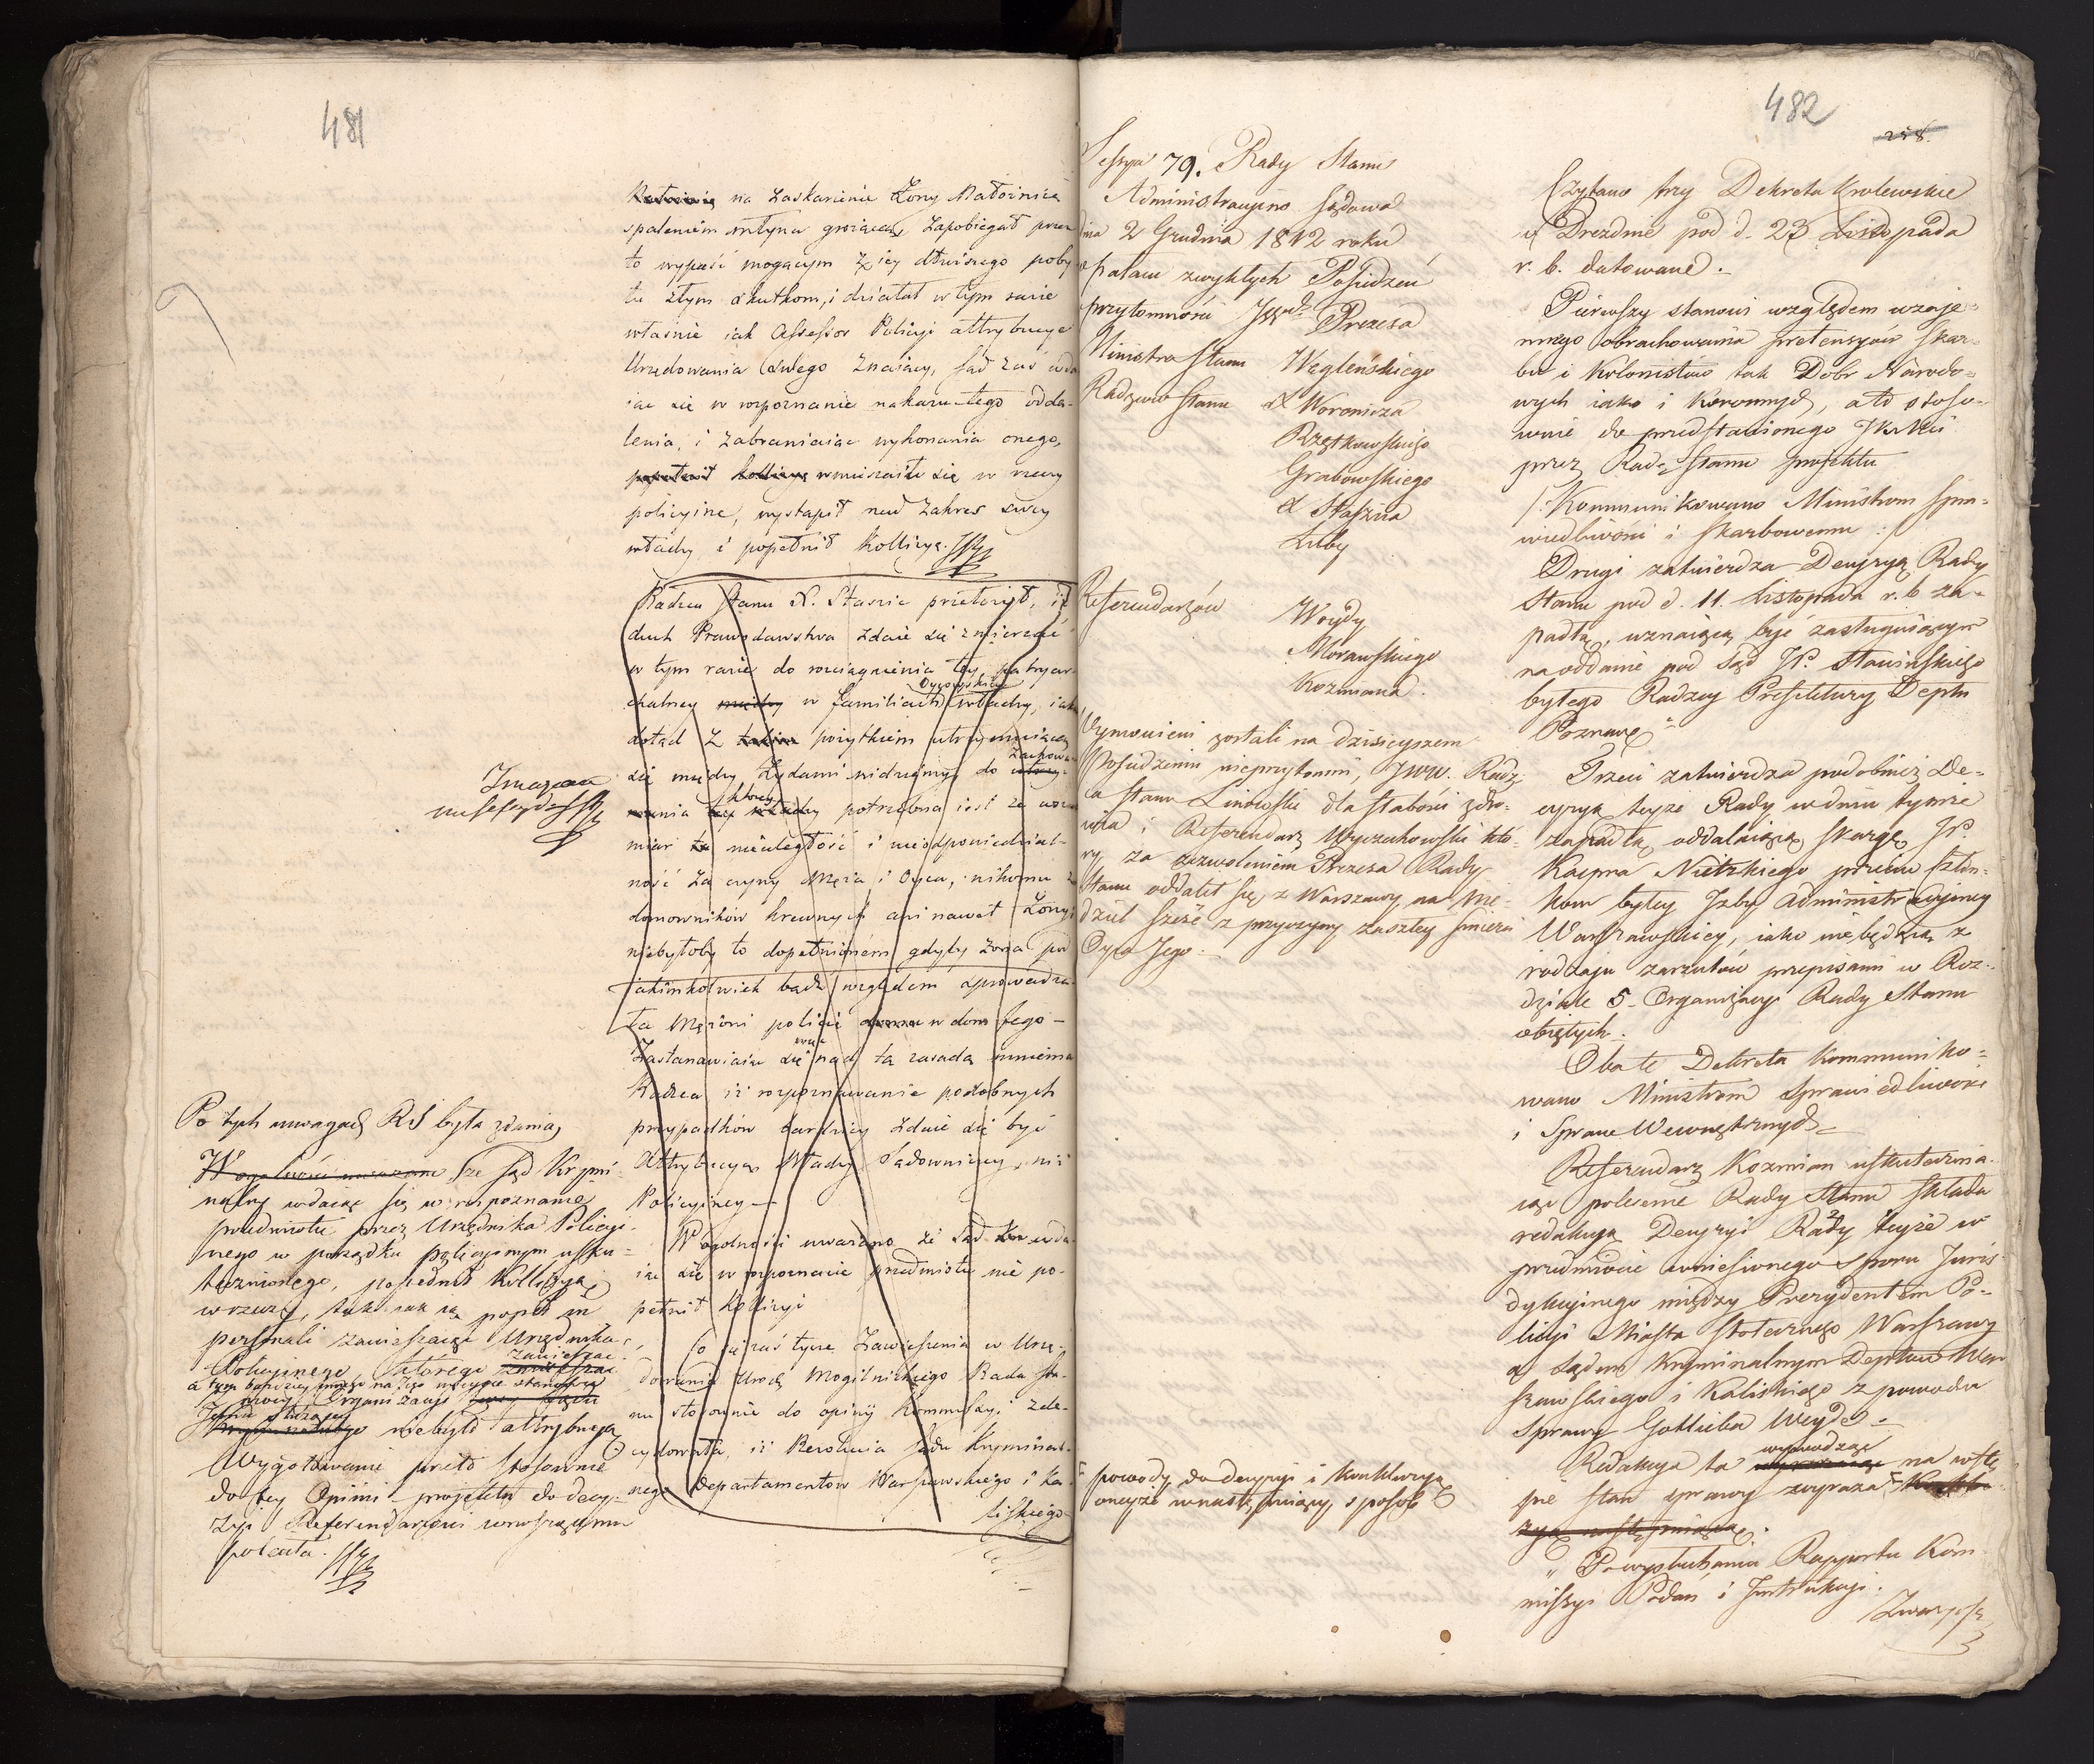 481
na zaskarżenie Żony Małżonka
spaleniem młyna grożącey, zapobiegał przez
to wypaść mogącym z iey dłuższego poby-
tu złym skutkom, i działał w tym razie
właśnie iak Assessor Policyi attrybucye
Urzędowania swego znaiący, Sąd zaś wda-
iąc się w rozpoznanie nakazu tego odda-
lenia, i zabraniaiąc wykonania onego,
popełnił kollizyą wmieszał się w rzeczy
policyine, wystąpił nad zakres swey
władzy i popełnił Kollizyą.
Radzca Stanu X. Staszic przełożył, iż
duch Prawodawstwa zdaie się zmierzać
w tym razie do rozciągnienia tey patryar-
chalney w familiach Oycowskiey władzy, iak
dotąd z pożytkiem utrzymuiącą
się między Żydami widziemy, do zachowa-
nia którey potrzebna iest
niuległość i nieodpowiedzial-
ność za czyny Męża i Oyca, nikomu z
domowników krewnych ani nawet Żony;
niebyłoby to dopełnioném gdyby żona pod
iakimkolwiek bądź względem sprowadza-
ła Mężowi policię w dom jego —
Zastanawiaiąc się więc nad tą zasadą mniema
Radzca iż rozpoznawanie podobnych
przypadków bardziey zdaie się być
Attrybucyą Władzy Sądowniczey, niż
Policyiney —
W ogólności uważano że Sąd wda-
iąc się w rozpoznanie przedmiotu nie po-
pełnił Kollizyi
Co się zaś tycze Zawieszenia w Urzę-
dowaniu Urodz. Mogilnickiego Rada Sta-
nu stosownie do opinii Kommissyi zde-
cydowała, iż Rezolucia Sądu Kryminal-
nego Departamentów Warszawskiego i Ka-
liskiego
Zmazano
na Sessyi
Po tych uwagach RS była zdania,
W ogólności uważano że Sąd Krymi-
nalny wdaiąc się w rozpoznanie
przedmiotu przez Urzędnika Policyi-
nego w porządku policyinym usku-
tecznionego, popełnił Kollizyą
w rzeczy, tak iak ią popeł. in
personali zawieszaiąc Urzędnika
Policyinego którego zawieszać
a tym bardziey
przeciw Organizacyi
niebyło attrybucyą
Wygotowanie przeto stosownie
do tey Opinii projektu do decy-
zyi Referendarzowi
poleciła.
482
258
Sessya 79. Rady Stanu
Administracyino Sądowa
dnia 2 Grudnia 1812 roku
w pałacu zwykłych Posiedzeń
w przytomności JWch Prezesa
Ministra Stanu Węgleńskiego
Radzców Stanu X Woronicza
Rzętkowskiego
Grabowskiego
X Staszica
Luby
Referendarzów Woydy
Morawskiego
Kozmiana.
Wymowieni zostali na dzisieyszem
Posiedzeniu nieprzytomni, JWW. Radz-
ca Stanu Linowski dla słabości zdro-
wia i Referendarz Wyczechowski któ-
ry za zezwoleniem Prezesa Rady
Stanu oddalił się z Warszawy na nie-
dziel sześć z przyczyny zaszłey śmierci
Oyca Jego. —
powody do decyzyi i konkluzyą
oneyże w następuiący sposób
Czytano trzy Dekreta Krolewskie
w Dreznie pod d. 23 Listopada
r. b. datowane. —
Pierwszy stanowi względem wzaje-
mnego obrachowania pretensyów Skar-
bu i Kolonistów tak Dobr Narodo-
wych iako i Koronnych, a to stoso-
wnie do przedstawionego JKMci
przez Radę Stanu projektu
/: Kommunikowano Ministrom Spra-
wiedliwości i Skarbowemu :/
Drugi zatwierdza Decyzyą Rady
Stanu pod d. 11. Listopada r. b. za-
padłą, uznaiącą być zasługuiącym
na oddanie pod Sąd JP. Stawińskiego
byłego Radzcę Prefektury Deptu
Poznańgo
Trzeci zatwierdza podobnież De-
cyzyą teyże Rady w dniu tymże
zapadłą, oddalaiącą skargę JP.
Kacpra Nietrzkiego przeciw Człon-
kom byłey Izby Administracyiney
Warszawskiey, iako nie będącą z
rodzaju zarzutów przepisami w Roz-
dziale 5. Organizacyi Rady Stanu
obiętych. —
Oba te Dekreta kommuniko-
wano Ministrom Sprawiedliwości
i Spraw Wewnętrznych. —
Referendarz Kozmian uskutecznia-
iąc polecenie Rady Stanu składa
redakcyą Decyzyi Rady teyże w
przedmiocie wniesionego Sporu Juris-
dykcyinego między Prezydentem Po-
licyi Miasta Stołecznego Warszawy
a Sądem Kryminalnym Deptów War-
szawskiego i Kaliskiego z powodu
Sprawy Gottlieba Weyde. —
Redakcya ta wyprowadzaiąc na wstę-
pie stan sprawy wyraża
„Po wysłuchaniu Rapportu Kom-
missyi Podań i Instrukcyi.
Zważywszy